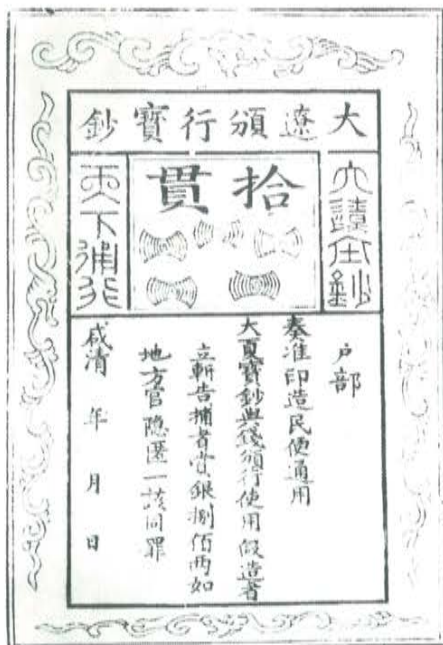 大遼頒行寶鈔
大遼鈔
拾貫
天下通行
户部
奏准印造民便通用
大夏寶鈔與錢頒行使用假造者
立斬告捕者賞銀捌佰兩如
地方官隐匿一該同罪
咸清 年 月 日